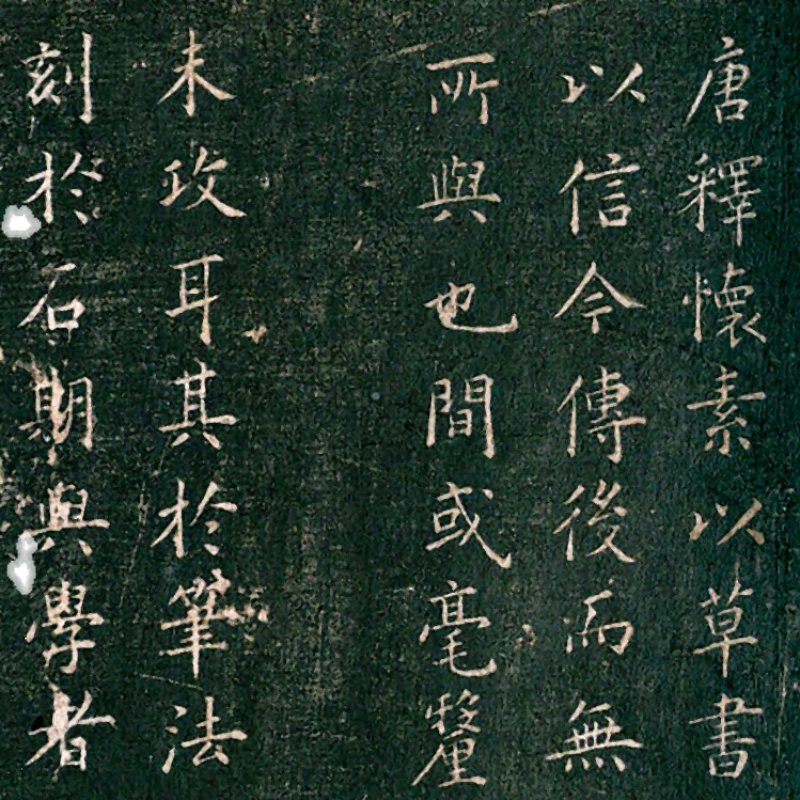 唐釋懷素以草書
以信今傳後而無
所與也間或毫釐
未攻耳其於筆法
刻於石期與學者